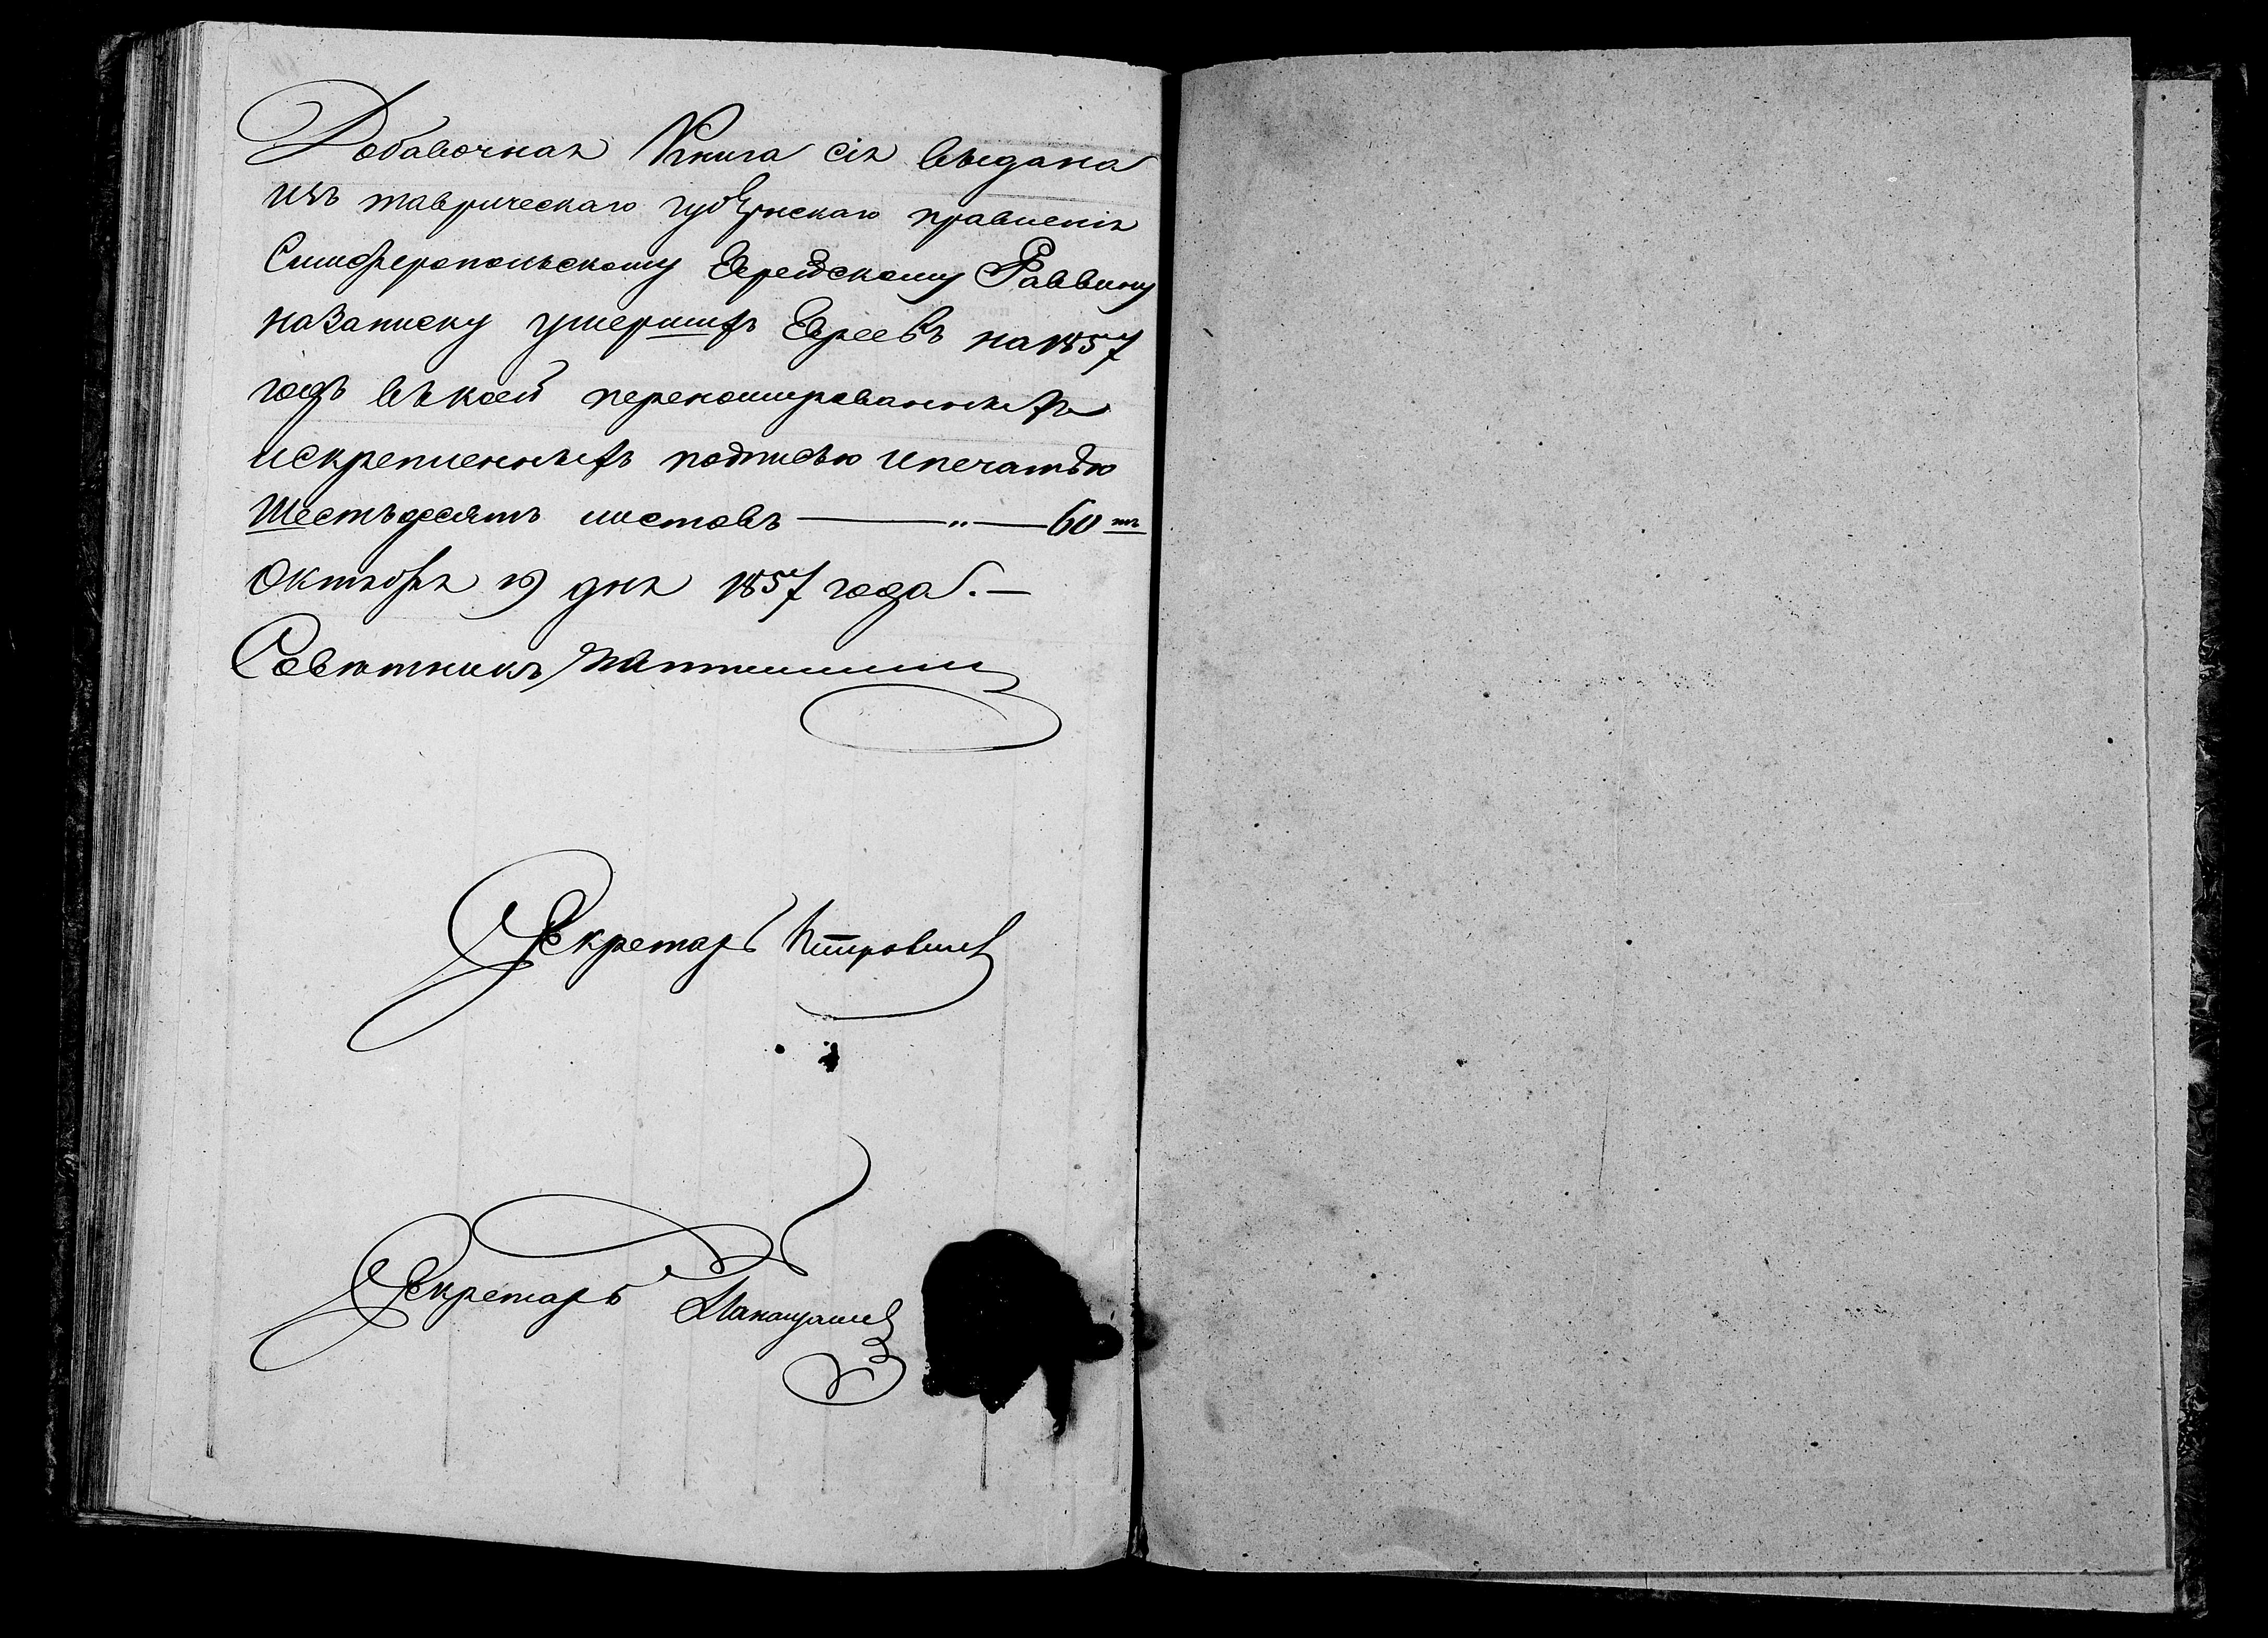 Добавочная Книга сія выдана
изъ таврическаго губернскаго правленія
Симферопольскому Еврейскому Раввину
на записку умершихъ Евреевъ на 1857
годъ въ коей переномированныхъ
искрепленныхъ подписью и печатью
Шестьдесятъ листовъ —— „ —— 60 тъ
Октября 19 дня 1857 года. —
Совѣтникъ
Секретарь Петровичъ
Секретарь